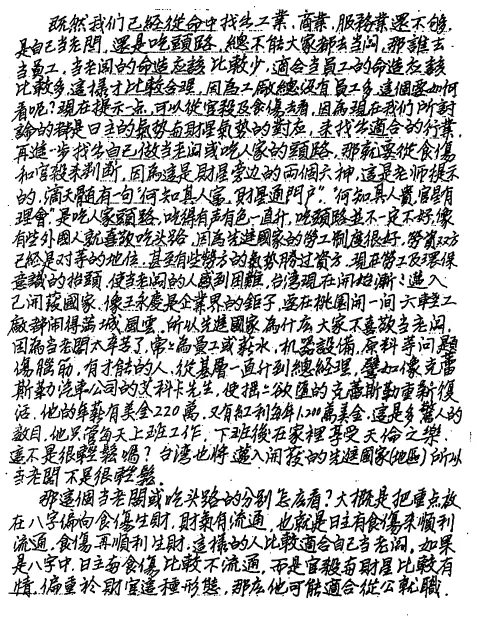 既然我们已經從命中找出工業、商業、服務業還不够,
是自己当老闆,還是吃頭路,總不能大家都去当闆,那誰去
当員工,当老闆的命造应該比較少,適合当員工的命造应該
比較多,這樣才比較合理,因為工廠總沒有員工多,這個要如何
看呢?現在提示一点,可以從官殺及食傷去看,因為現在我們所討
論的都是日主的氣勢与財星氣勢的對应,來找出適合的行業,
再進一步找出自己做当老闆或吃人家的頭路,那就要從食傷
和官殺来判断,因為這是財星旁边的两個六神,這是老师提示
的,滴天髓有一句"何知其人富,財星通門户","何知其人貴官星有
理會"是吃人家頭路,吃得有声有色一直升,吃頭路並不一定不好,像
有些外國人就喜歡吃头路,因為先進國家的勞工制度很好,勞資双方
己經是对等的地位,甚至有些勞方的氣勢勝过資方,現在勞工及環保
意識的抬頭,使当老闆的人感到困難,台湾現在開始漸々邁入
己開發國家,像王永慶是企業界的鉅子,要在桃園開一間六輕工
廠都鬧得满城風雲,所以先進國家為什広大家不喜歡当老闆,
因為当老闆太辛苦了,常々為員工或薪水,机器設備,原料等问題
傷腦筋,有才能的人,從基層一直升到總經理,譬如像克蕾
斯勒汽車公司的艾科卡先生,使摇々欲匯的克蕾斯勒重新復
活,他的年薪有美金220萬,又有紅利每年1,200萬美金,這是多驚人的
数目,他只管每天上班工作,下班後在家裡享受天倫之樂,
這不是很輕鬆嗎?台湾也将邁入開發的先進國家(地區)所以
当老闆不是很輕鬆。
那這個当老闆或吃头路的分别怎広看?大概是把重点放
在八字偏向食傷生財,財氣有流通,也就是日主有食傷来順利
流通,食傷再順利生財,這樣的人比較適合自己当老闆,如果
是八字中,日主与食傷比較不流通,而是官殺与財星比較有
情,偏重於財官這種形態,那広他可能適合從公就職,